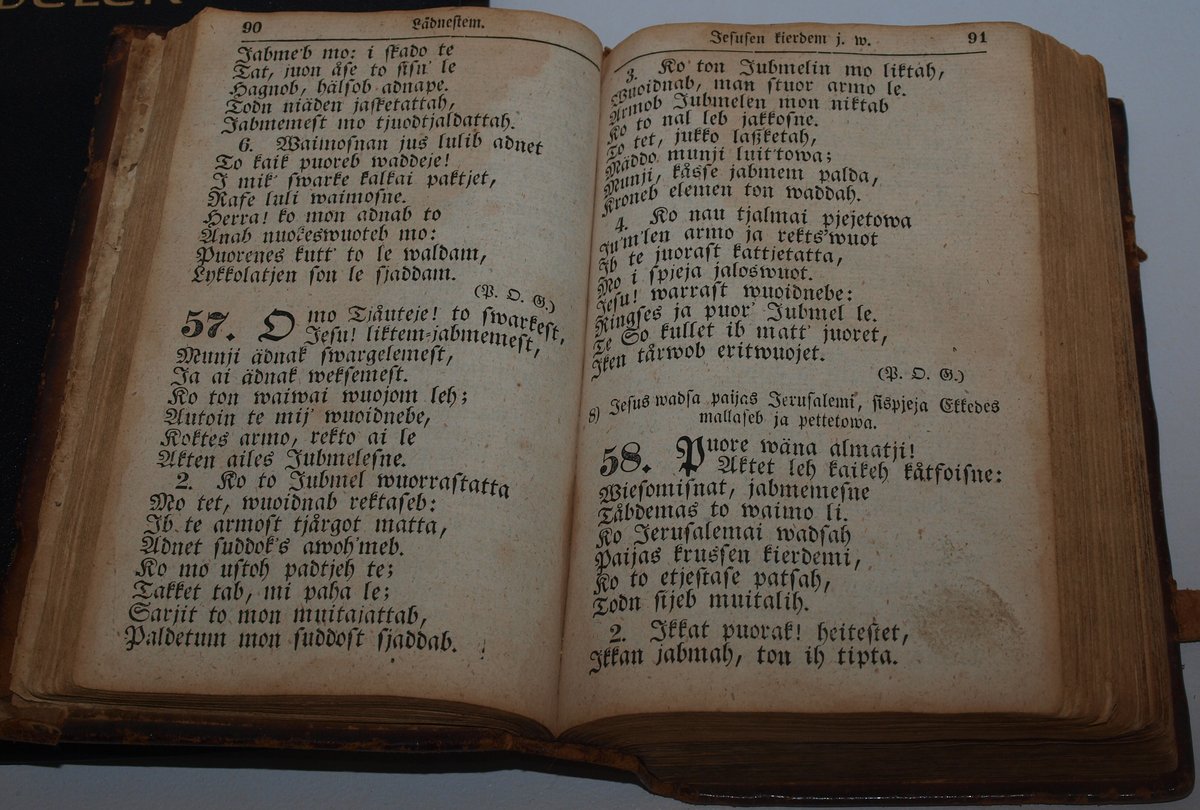 90
Lådnestem.
Jabme'b mo: i skado te
Tat, juon åse to sisn' le
Hagnob, hålsob adnape.
Todn niåden jasketattah,
Jabmemest mo tjuodtjaldattah.
6. Waimosnan jus lulib adnet
To kaik puoreb waddeje!
I mik' swarke kalkai paktjet,
Rafe luli waimosne.
Herra! ko mon adnab to
Anah nuokeswuoteb mo:
Puorenes kutt' to le waldam,
Lykkolatjen son le sjaddam.
(P. O. G.)
57. O mo Tjåuteje! to swarkest,
Jesu! liktem-jabmemest,
Munji ådnak swargelemest,
Ja ai ådnak weksemest.
Ko ton waiwai wuojom leh;
Autoin te mij' wuoidnebe,
Koktes armo, rekto ai le
Akten ailes Jubmelesne.
2. Ko to Jubmel wuorrastatta
Mo tet, wuoidnab rektaseb:
Ib te armost tjårgot matta,
Adnet suddok's awoh'meb.
Ko mo ustoh padtjeh te;
Takket tab, mi paha le;
Sarjit to mon muitajattab,
Paldetum mon suddost sjaddab.
Jesusen kierdem j. w.
91
3. Ko ton Jubmelin mo liktah,
Wuoidnab, man stuor armo le.
Armob Jubmelen mon niktab
Ko to nal leb jakkosne.
To tet, jukko lasketah,
Måddo munji luit'towa;
Munji, kåsse jabmem palda,
Kroneb elemen ton waddah.
4. Ko nau tjalmai pjejetowa
Ju'm'len armo ja rekts'wuot
Ib te juorast kattjetatta,
Mo i spjeja jaloswuot.
Jesu! warrast wuoidnebe:
Ringses ja puor' Jubmel le.
Te So kullet ib matt' juoret,
Iken tårwob eritwuojet.
(P. O. G.)
8) Jesus wadsa paijas Jerusalemi, sispjeja Ekkedes
mallaseb ja pettetowa.
58. Puore wåna almatji!
Aktet leh kaikeh kåtfoisne:
Wiesomisnat, jabmemesne
Tåbdemas to waimo li.
Ko Jerusalemai wadsah
Paijas krussen kierdemi,
Ko to etjestase patsah,
Todn sijeb muitalih.
2. Ikkat puorak! heitestet,
Ikkan jabmah, ton ih tipta.